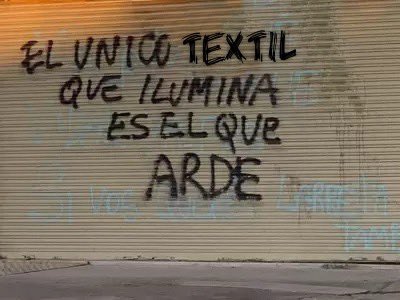 EL UNICO TEXTIL
QUE ILUMINA
ES EL QUE
ARDE
SI VOS